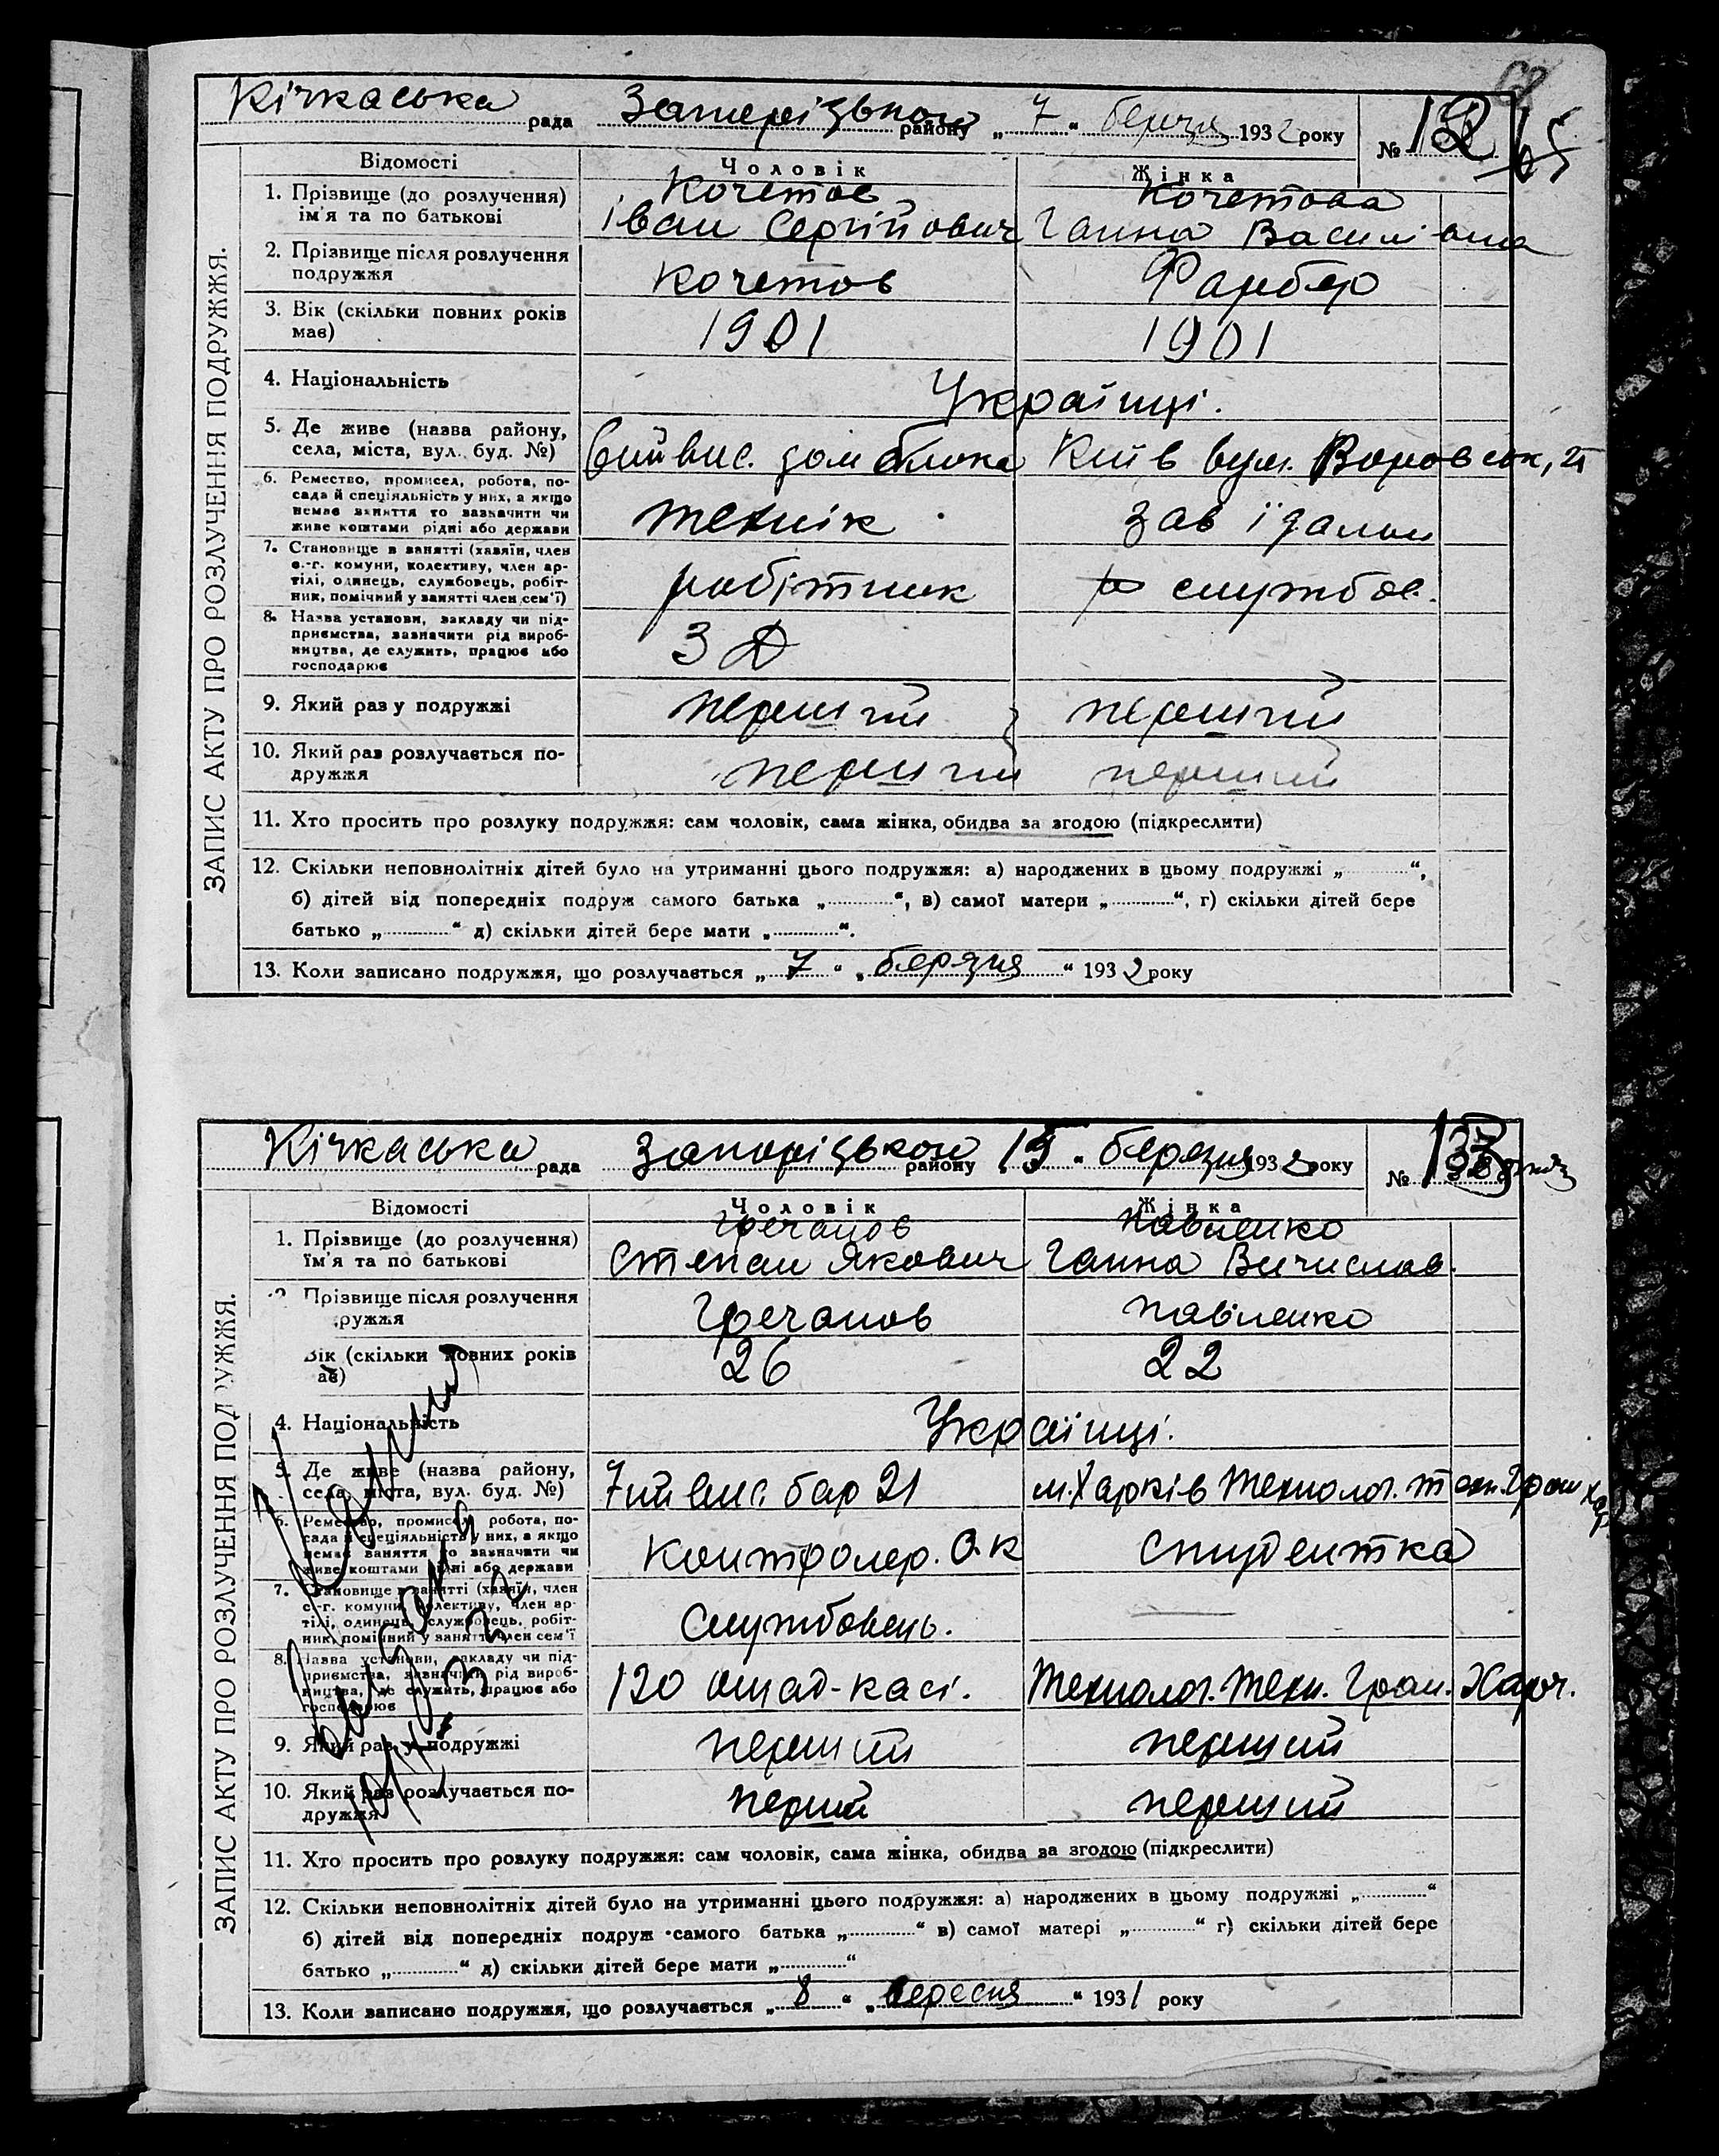 Кічкаська рада Запорізького району „7“ березня 1932 року № 132
Відомості Чоловік Жінка
1. Прізвище (до розлучення) ім'я та по батькові Кочетов Кочетова
Іван Сергійович Ганна Василівна
2. Прізвище після розлучення подружжя Кочетов Фарбер
3. Вік (скільки повних років має) 1901 1901
4. Національність Українці.
5. Де живе (назва району, села, міста, вул. буд. №) вис. дом Київ вул. Воровськ,
6. Ремество, промисел, робота, по-
сада й спеціяльність у них, а якщо
немає заняття то зазначити чи
живе коштами рідні або держави технік зав їдальн
7. Становище в занятті (хазяїн, член
с.-г. комуни, колективу, член ар-
тілі, одинець, службовець, робіт-
ник, помічний у занятті член сем'ї) робітник службов.
8. Назва установи, закладу чи під-
приємства, зазначити рід вироб-
ництва, де служить, працює або
господарює З Д
9. Який раз у подружжі перший перший
10. Який раз розлучається по-
дружжя перший перший
11. Хто просить про розлуку подружжя: сам чоловік, сама жінка, обидва за згодою (підкреслити)
12. Скільки неповнолітніх дітей було на утриманні цього подружжя: а) народжених в цьому подружжі „ “,
б) дітей від попередніх подруж самого батька „ “, в) самої матери „ “, г) скільки дітей бере
батько „ “ д) скільки дітей бере мати „ “.
13. Коли записано подружжя, що розлучається „7“ „березня“ 1932 року
ЗАПИС АКТУ ПРО РОЗЛУЧЕННЯ ПОДРУЖЖЯ.
Кічкаська рада Запорізького району 15 „ березня 1932 року № 133
Відомості Чоловік Жінка
1. Прізвище (до розлучення) їм'я та по батькові Гречанов Павленко
Степан Якович Ганна Вичислав.
2. Прізвище після розлучення
ружжя Гречанов Павленко
Вік (скільки повних років
ає) 26 22
4. Національність Українці.
5. Де живе (назва району,
села, міста, вул. буд. №) 7ий вис. бар 21 м. Харків Технолог. техн.
6. Ремество, промисел, робота, по-
сада й спеціяльність у них, а якщо
немає заняття то зазначити чи
живе коштами рідні або держави Контролер. О.К студентка
7. Становище в занятті (хазяїн, член
с.-г. комуни, колективу, член ар-
тілі, одинець, службовець, робіт-
ник, помічний у занятті член сем'ї Службовець.
8. Назва установи, закладу чи під-
приємства, зазначити рід вироб-
ництва, де служить, працює або
господарює 120 ощад-касі. Технолог. Техн. Гром. Харч.
9. Який раз у подружжі перший перший
10. Який раз розлучається по-
дружжя перший перший
11. Хто просить про розлуку подружжя: сам чоловік, сама жінка, обидва за згодою (підкреслити)
12. Скільки неповнолітніх дітей було на утриманні цього подружжя: а) народжених в цьому подружжі „ “
б) дітей від попередніх подруж самого батька „ “ в) самої матері „ “ г) скільки дітей бере
батько „ “ д) скільки дітей бере мати „ “
13. Коли записано подружжя, що розлучається „8“ „вересня“ 1931 року
ЗАПИС АКТУ ПРО РОЗЛУЧЕННЯ ПОДРУЖЖЯ.